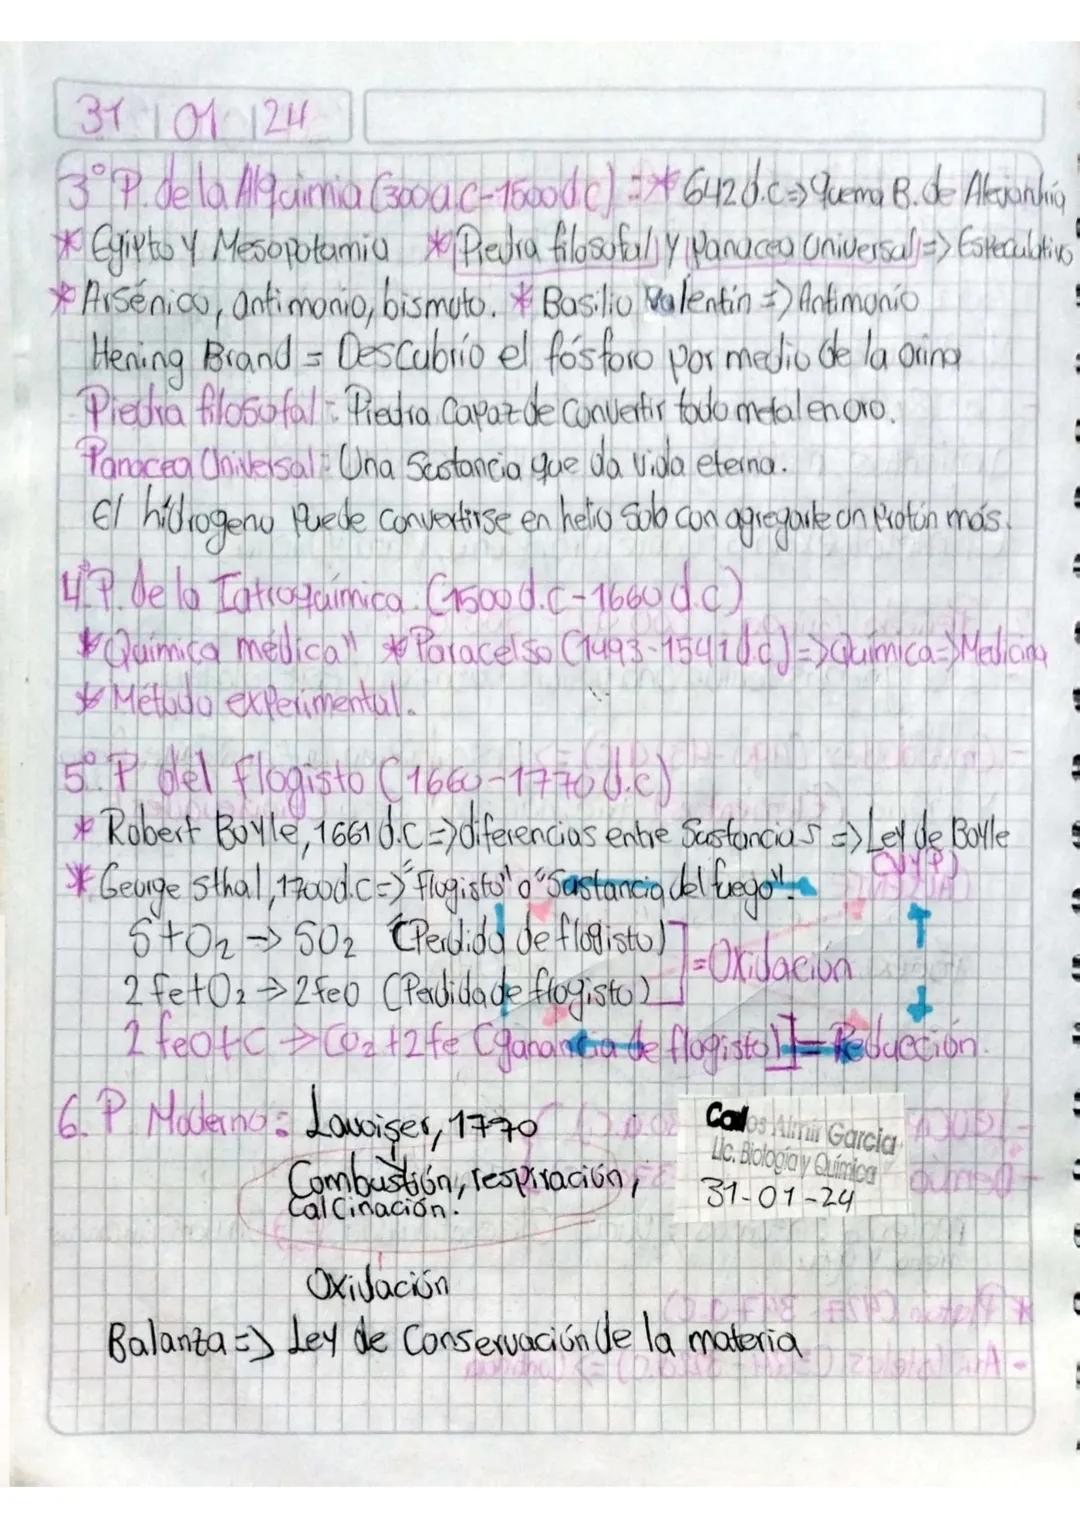 31 01 24
3° P. de la Alquimia (300a.c-1500d.c) :* 642 d.c => Quema B. de Alejandría
* Egipto y Mesopotamia * Piedra filosofal y Panacea Universal => Especulativo
* Arsénico, antimonio, bismuto. * Basilio Valentín => Antimonio
Hening Brand = Descubrío el fósforo por medio de la orina
Piedra filosofal = Piedra Capaz de Convertir todo metal en oro.
Panacea Universal = Una Sustancia que da vida eterna.
El hidrogeno Puede convertirse en helio Solo con agregarle un Protón más.
4°P. de la Iatroquímica. (1500 d.c-1660 d.c)
* Química médica" * Paracelso (1493-1541 d.c) => Química => Medicina
* Método experimental.
5° P del flogisto (1660-1770 d.c)
* Robert Boyle, 1661 d.c => diferencias entre Sustancias => Ley de Boyle
(V y P)
* George Sthal, 1700d.c => "flogisto" o "Sustancia del fuego".
S+O2 → SO2 (Perdida de flogisto)
=Oxidación
2 fe+O2 → 2feO (Perdida de flogisto)
2 feO+C → CO2+2fe (ganancia de flogisto) = Reducción.
6. P Moderno: Lavoiser, 1770
Combustión, respiración,
Calcinación.
Carlos Almir Garcia
Lic. Biología y Química
31-01-24
Oxidación
Balanza => Ley de Conservación de la materia